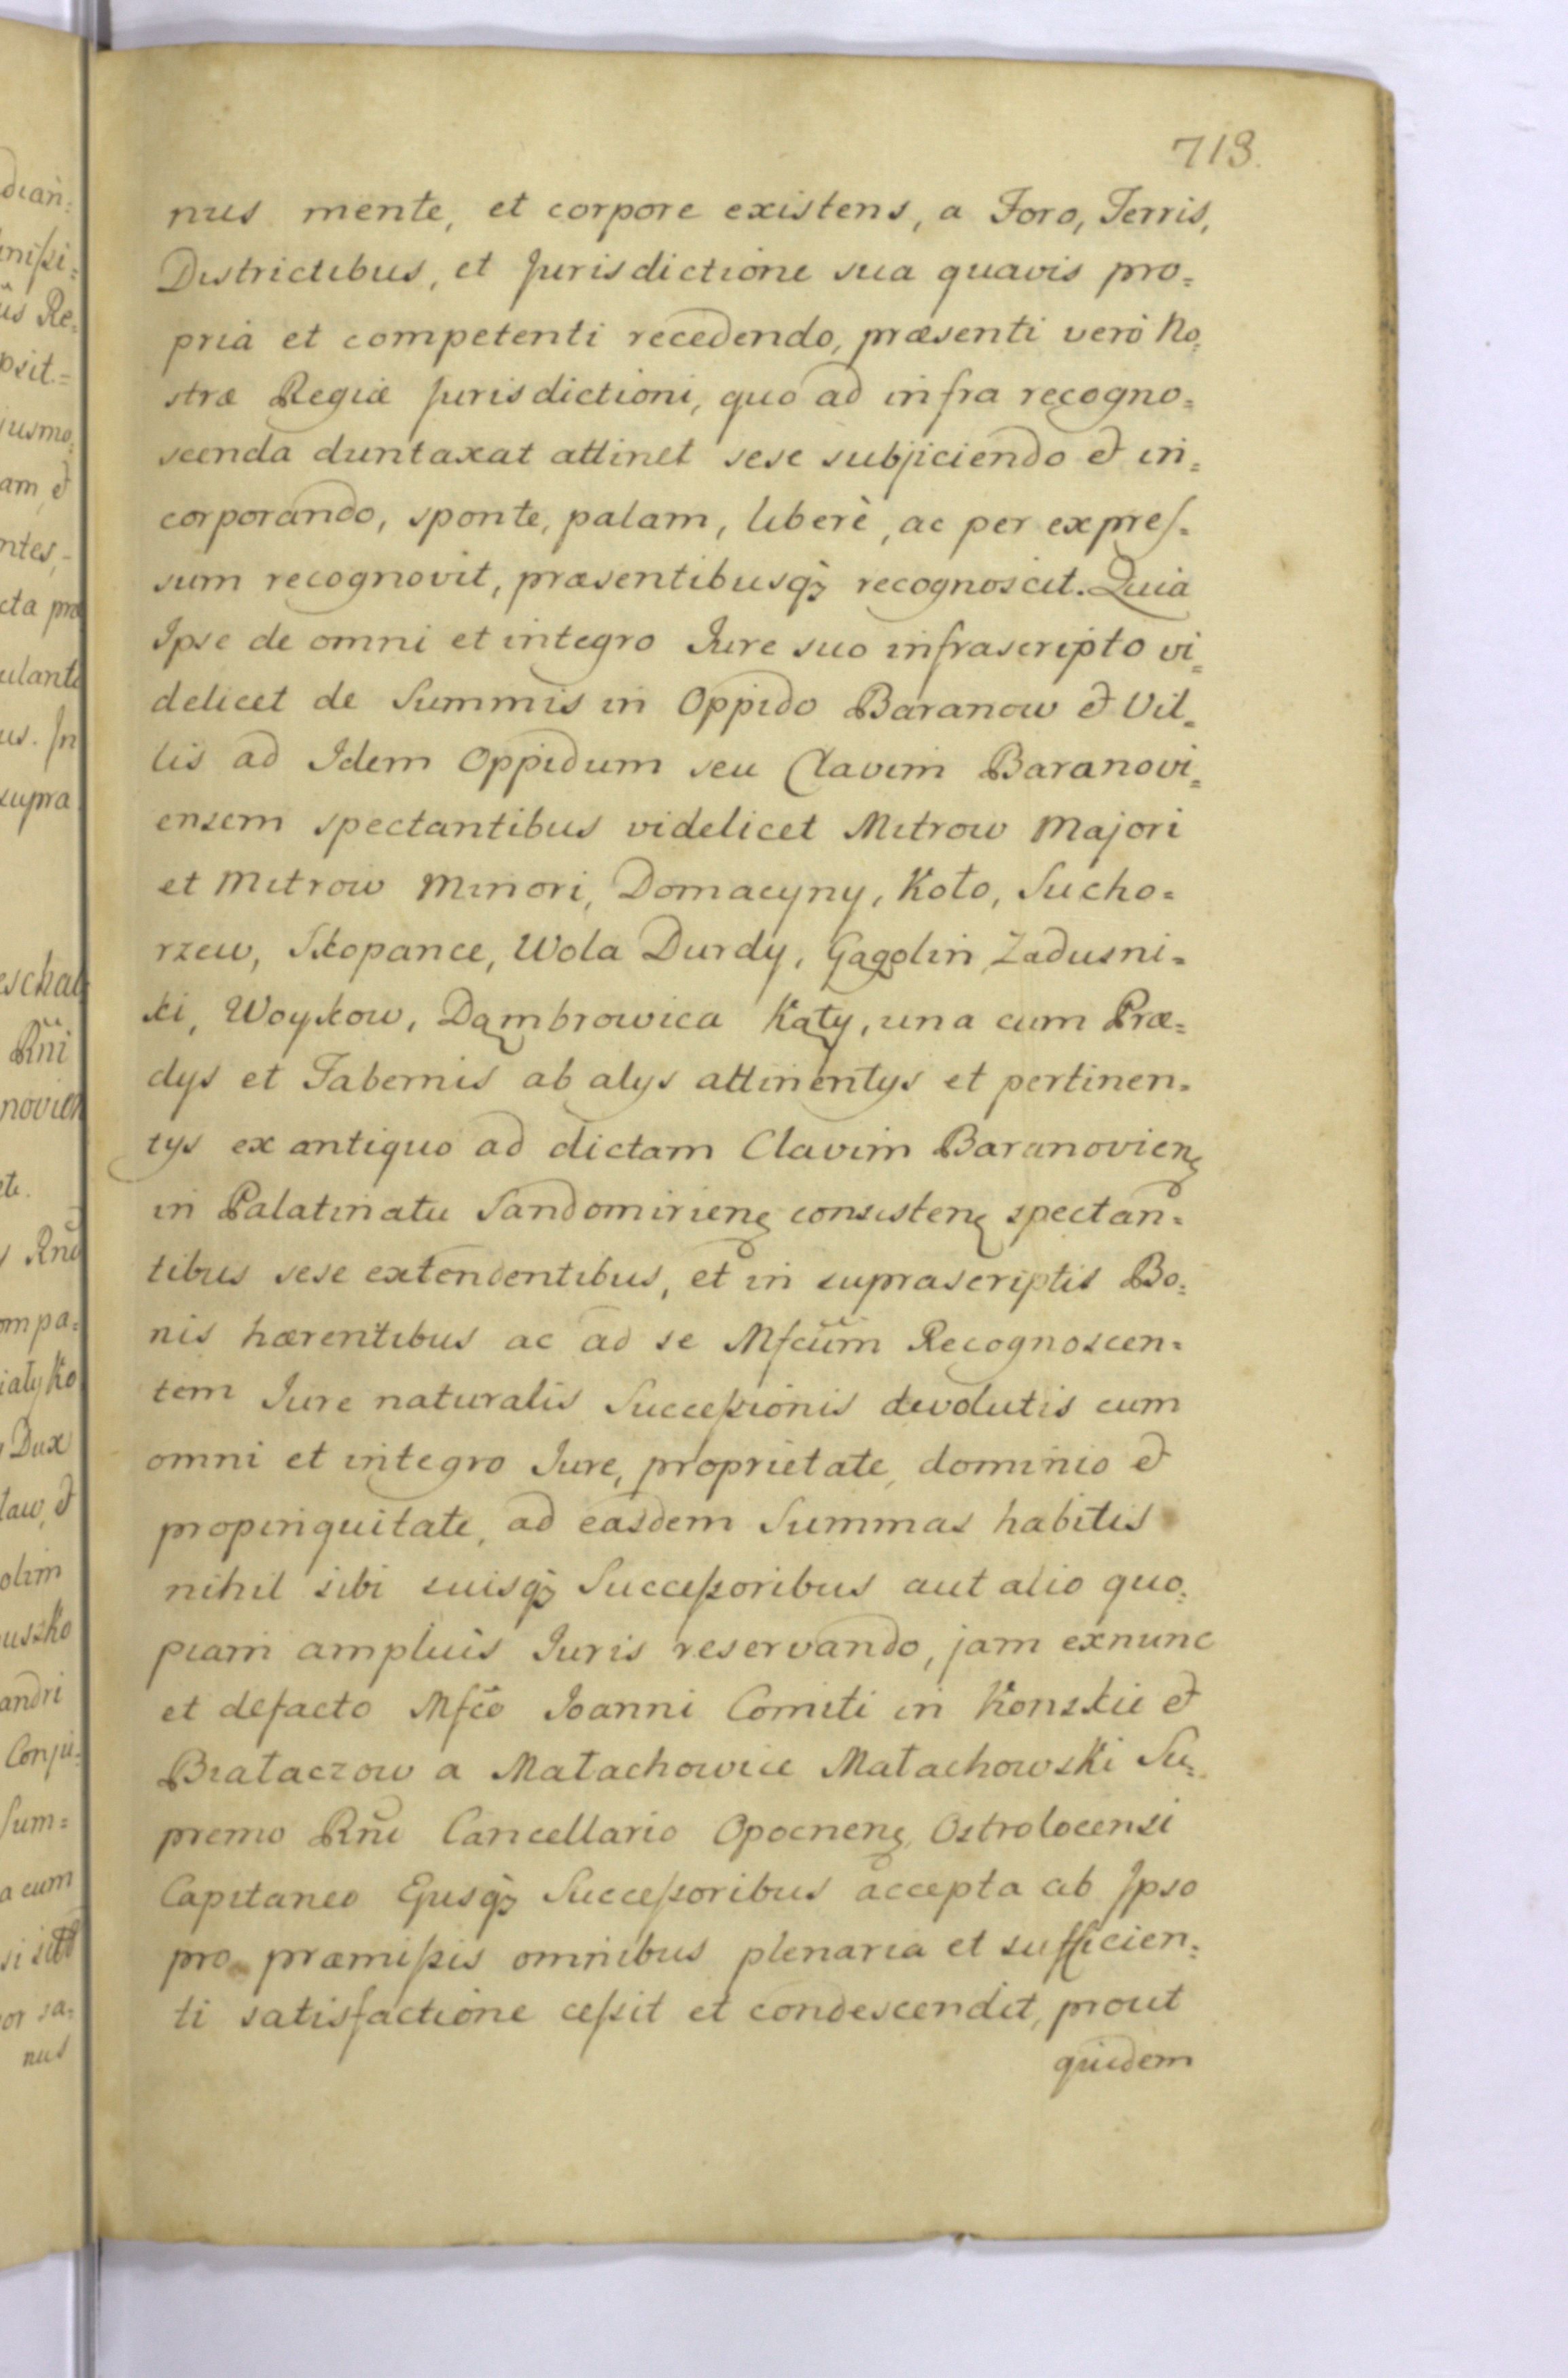 713.
nus mente, et corpore existens, a Foro, Terris,
Districtibus, et Jurisdictione sua quavis pro=
pria et competenti recedendo, præsenti verò No=
stræ Regiæ Jurisdictioni, quo ad infra recogno=
scenda duntaxat attinet sese subjiciendo et in=
corporando, sponte, palam, liberè, ac per expres=
sum recognovit, præsentibusq3 recognoscit. Quia
Ipse de omni et integro Iure suo infrascripto vi=
delicet de Summis in Oppido Baranow et Vil=
lis ad Idem Oppidum seu Clavim Baranovi=
ensem spectantibus videlicet Mitrow Majori
et Mitrow Minori, Domacyny, Koło, Sucho=
rzew, Skopance, Wola Durdy, Gągolin, Zadusni=
ki, Woykow, Dąmbrowica Kąty, una cum Præ=
dys et Tabernis ab alys attinentys et pertinen=
tys ex antiquo ad dictam Clavim Baranovien̨
in Palatinatu Sandomirien̨ consisten̨ spectan=
tibus sese extendentibus, et in suprascriptis Bo=
nis hærentibus ac ad se Mfcum Recognoscen=
tem Iure naturalis Successionis devolutis cum
omni et integro Iure, proprietate, dominio et
propinquitate, ad easdem Summas habitis
nihil sibi suisq3 Successoribus aut alio quo=
piam amplius Iuris reservando, jam exnunc
et defacto Mfco Joanni Comiti in Konskie et
Białaczow a Małachowice Małachowski Su=
premo Rni Cancellario Opocnen̨, Ostrolocensi
Capitaneo Ejusq3 Successoribus accepta ab Ipso
pro præmissis omnibus plenaria et sufficien=
ti satisfactione cessit et condescendit, prout
quidem